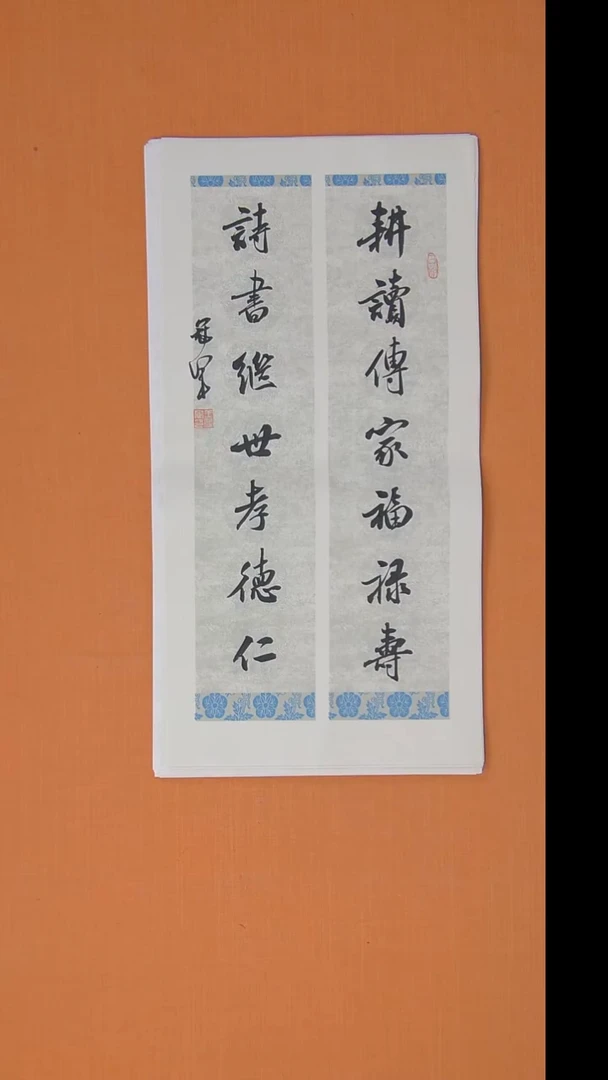 耕讀傳家福禄壽
詩書继世孝德仁